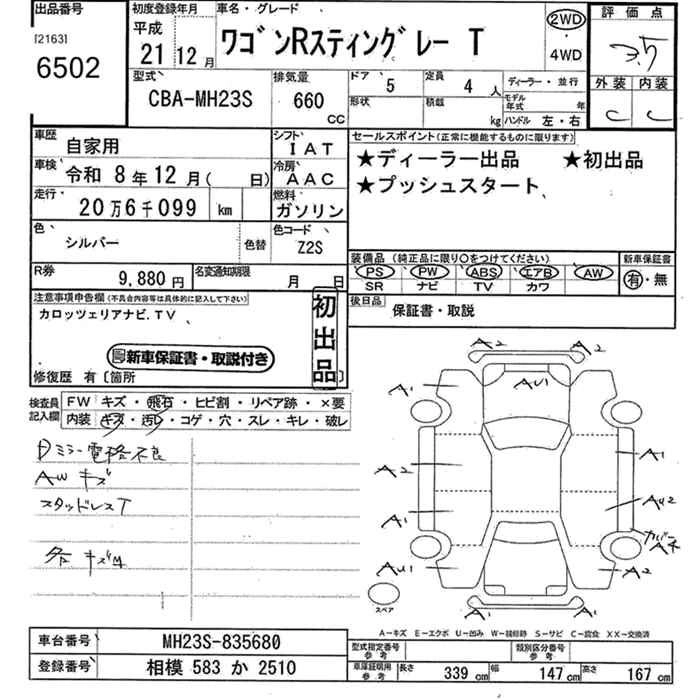 出品番号
[2163]
6502
初度登録年月
平成
21年12月
車名・グレード
ワゴンRスティングレー T
2WD
・
4WD
評価点
3.5
外装 内装
C C
型式
CBA-MH23S
排気量
660
CC
ドア 5
定員 4人
形状
積載 kg
ディーラー・並行
モデル年式 年
ハンドル 左・右
車歴 自家用
シフト IAT
車検 令和 8年12月( 日)
冷房 AAC
走行 20万6千099 km
燃料 ガソリン
色 シルバー
色替
色コード Z2S
R券 9,880円
名変通知期限 月 日
セールスポイント(正常に機能するものに限ります)
★ディーラー出品 ★初出品
★プッシュスタート、
装備品(純正品に限り○をつけてください)
PS PW ABS エアB AW
SR ナビ TV カワ
新車保証書
有・無
後日品 保証書・取説
注意事項申告欄(不具合内容等は具体的に記入して下さい)
カロッツェリアナビ.TV
初出品
新車保証書・取説付き
修復歴 有〔箇所 〕
検査員記入欄
FW キズ・飛石・ヒビ割・リペア跡・×要
内装 キズ・汚レ・コゲ・穴・スレ・キレ・破レ
ミラー電格不良
AWキズ
スタッドレスT
各キズ凹
A2 A2
A1 AU1 A1
A2 A1
A1 AU2
カバー
AU1 A2
A1 A1
スペア
A-キズ E-エクボ U-凹み W-補修跡 S-サビ C-腐食 XX-交換済
車台番号 MH23S-835680
登録番号 相模 583 か 2510
型式指定番号 参考
類別区分番号 参考
車庫証明用 参考
長さ 339cm 幅 147cm 高さ 167cm